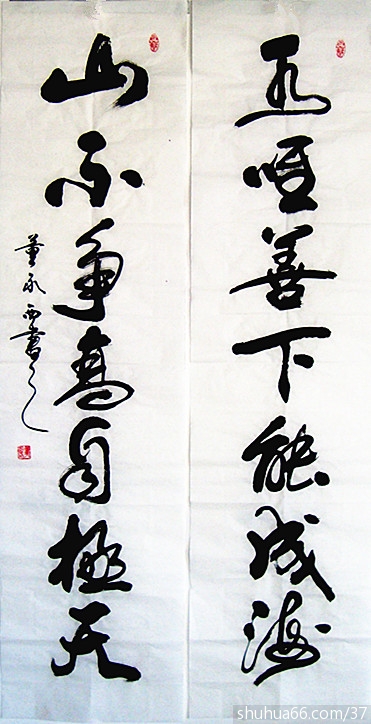 水唯善下能成海
山不爭高自極天
董西書
shuhua66.com/37